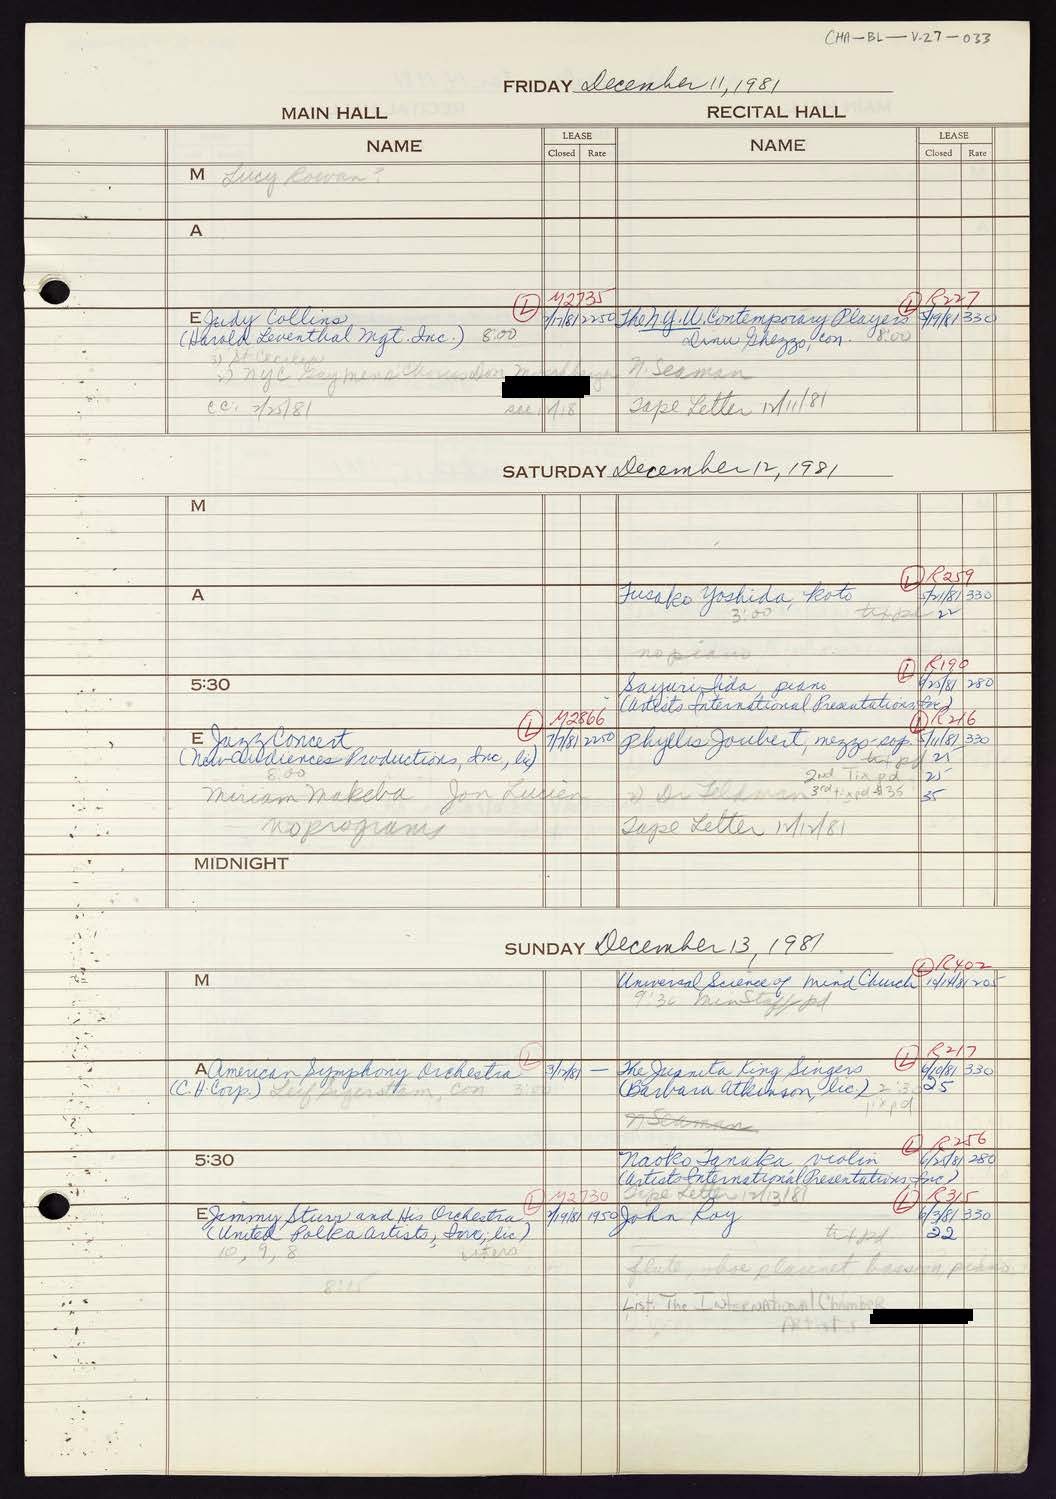 CHA-BL-V.27-033
FRIDAY December 11, 1981
MAIN HALL RECITAL HALL
NAME LEASE Closed Rate NAME LEASE Closed Rate
M Lucy Rowan?
A
(L) M2735 (L) R227
E Judy Collins 2250 The N.Y.U. Contemporary Players 5/19/81 330
(Harold Leventhal Mgt. Inc.) 8:00 Dinu Ghezzo, con. 8:00
3) St Cecilia
2) NYC Gay Mens Chorus Don N. Seaman
cc: 2/25/81 see Tape Letter 12/11/81
SATURDAY December 12, 1981
M
(L) R259
A Fusako Yoshida, koto 5/21/81 330
3:00 tix pd 22
no piano
(L) R190
5:30 Sayuri Iida piano 280
(Artists International Presentations, Inc)
(L) M2866 (L) R216
E Jazz Concert 7/7/81 2250 Phyllis Joubert, mezzo-sop. 5/11/81 330
(New Audiences Productions, Inc, lic) tix pd 21
8:00 2nd Tix pd 25
Miriam Makeba Jon Lucien 2) Dr Feldman 3rd tix pd $35 35
no programs Tape Letter 12/12/81
MIDNIGHT
SUNDAY December 13, 1981
(L) R402
M Universal Science of Mind Church 10/14/81 205
9:30 Min Staff pd
(L) (L) R217
A American Symphony Orchestra 3/12/81 — The Juanita King Singers 330
(C.H. Corp.) Leif Segerstam, con 3:00 (Barbara Atkinson, lic) 2:30 25
tix pd
N Seaman
(L) R256
5:30 Naoko Tanaka violin 6/25/81 280
(Artists International Presentations, Inc)
(L) M2730 Tape Letter 12/13/81 (L) R315
E Jimmy Sturr and His Orchestra 1950 John Roy 6/3/81 330
(United Polka Artists, Inc, lic) tix pd 22
10, 9, 8 ushers
flute, oboe clarinet bassoon, piano
8:15
List: The International Chamber
Artists